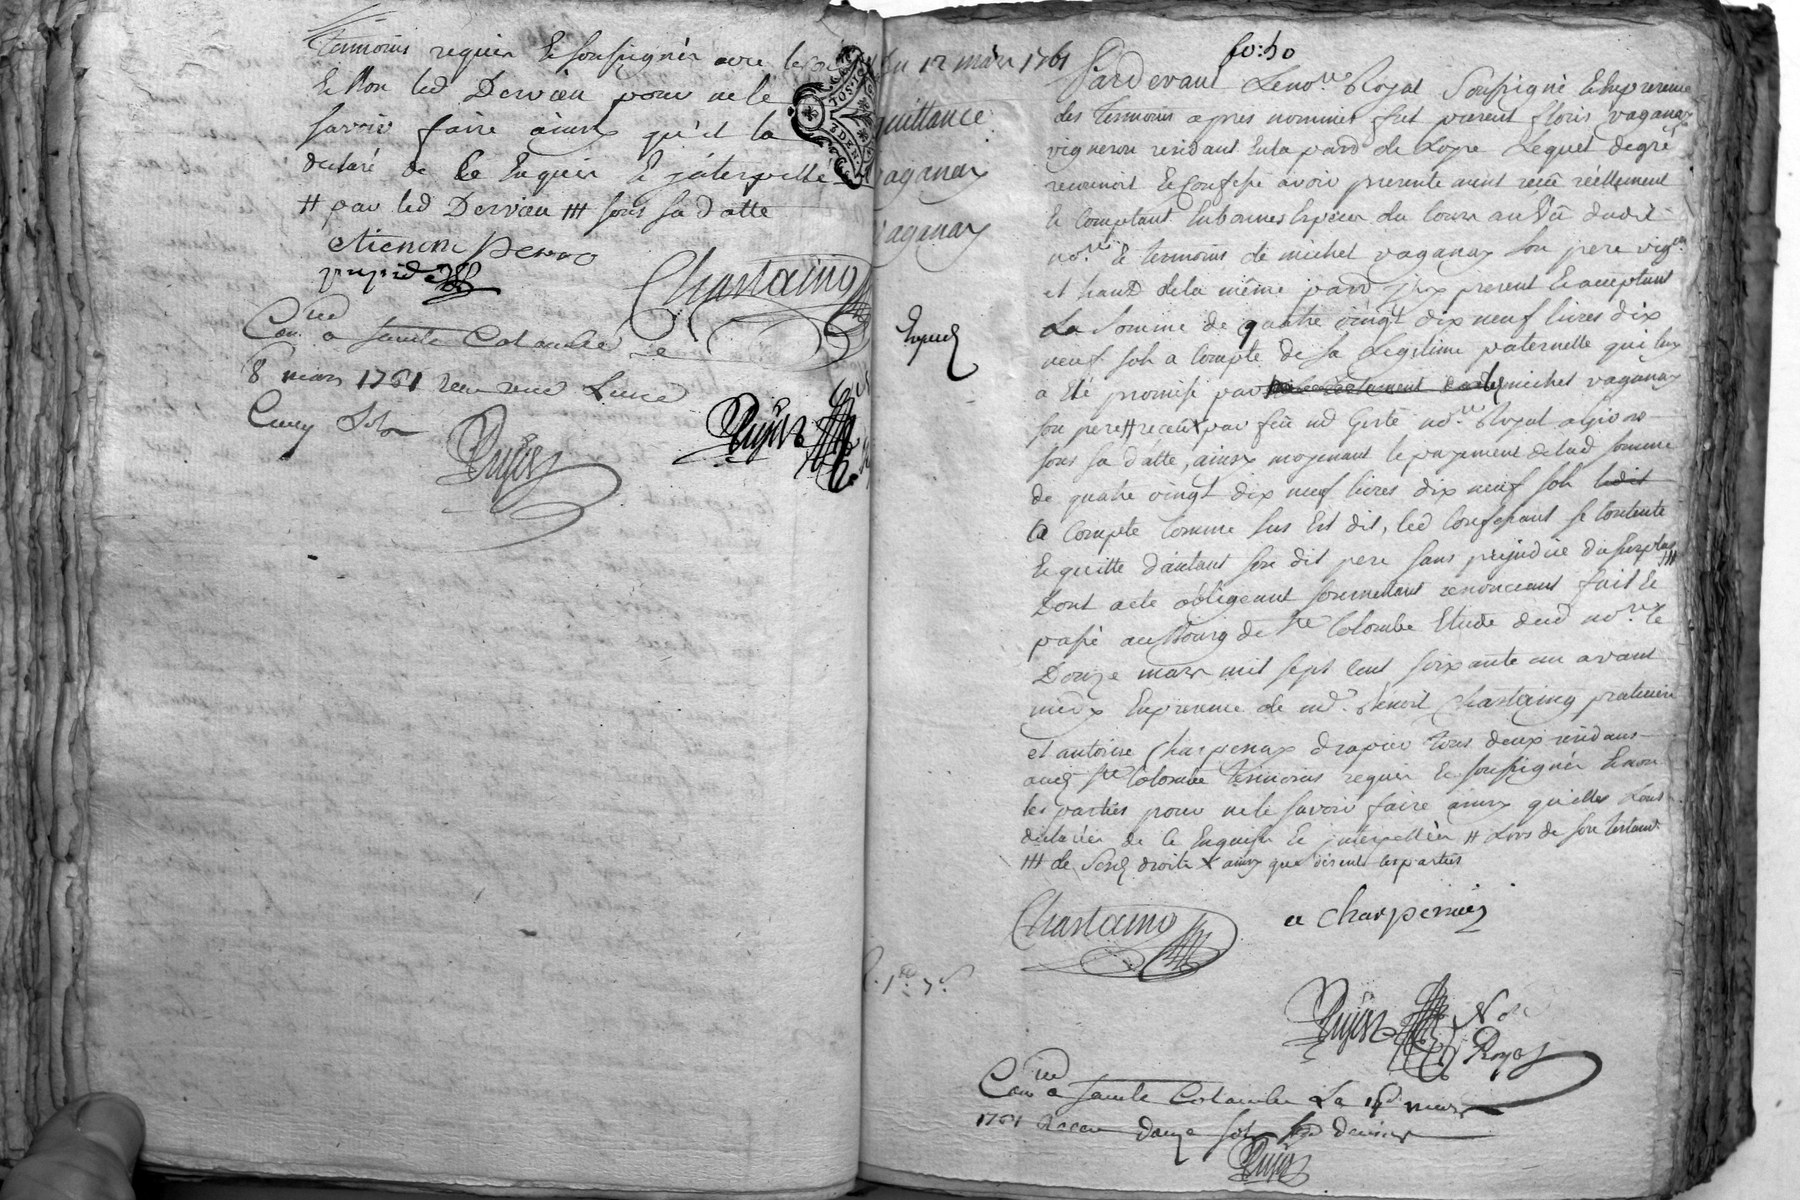 temoins requis et soussignés avec
et Non led Dervieu pour ne le
savoir faire ainsy qu'il la
declaré de ce enquis et jnterpellé
# par led Dervieu ### sous sa datte
etienne perro
Chastaing
Con.lée a sainte Colombe le
8 mars 1761 receu
Pujos
Pujos
fo: 50
du 12 mars 1761
quittance
vaganay
vaganay
Exped
Pardevant Le no.re Royal Soussigné et en presence
des temoins apres nommés fut present floris vaganay
vigneron residant en la parr de Loyre Lequel de gré
reconnoit et Confesse avoir presentement receu réellement
et Comptant en bonnes especes du Cours au Vû dudit
no.re et temoins de michel vaganay son pere vig.on
et hant de la même parr jcy present et acceptant
La Somme de quatre vingt dix neuf livres dix
neuf sols a Compte de sa Legitime paternelle qui luy
a eté promise par michel vaganay
son pere # receu par feu me no.re Royal
sous sa datte, ainsy moyenant le payement de lad somme
de quatre vingt dix neuf livres dix neuf sols
a Compte Comme sus Est dit, led Confessant se Contente
et quitte d'autant son dit pere sans prejudice du surplus ###
Dont acte obligeant soumettant renonceant fait et
passé au Bourg de ste Colombe Etude dud no.re le
Douze mars mil sept Cent soixante un avant
midy En presence de me. Benoit Chastaing praticien
et antoine Charpenay drapier tous deux residans
aud ste Colombe temoins requis et soussignés et non
les parties pour ne le savoir faire ainsy qu'elles ont
declarées de ce Enquises et jnterpellées # Lors de son testamt
### de ses droits x ainsy que disent les parties
Chastaing
a Charpenay
Pujos No.
Royal
Con.lée a sainte Colombe Le mars
1761 Receu douze sols denier
Pujos